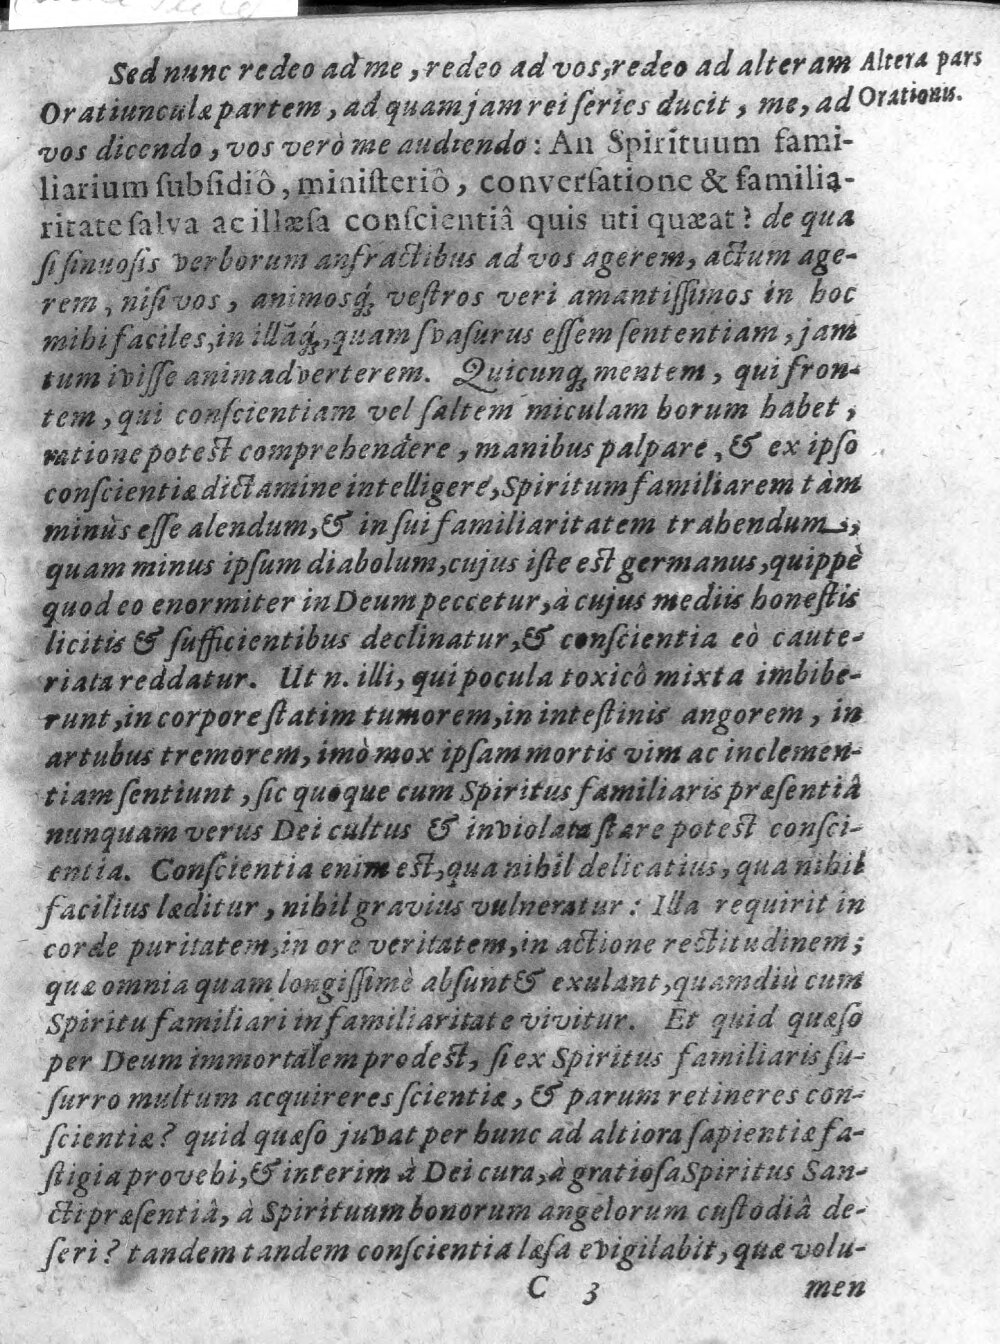 Sed nunc redeo ad me, redeo ad vos, redeo ad alteram
Altera pars
Oratiunculæ partem, ad quam jam rei ſeries ducit, me, ad
Orationis.
vos dicendo, vos verò me audiendo: An Spirituum fami-
liarium ſubſidiô, miniſteriô, converſatione & familia-
ritate ſalva ac illæſa conſcientiâ quis uti quæat? de qua
ſi ſinuoſis verborum anfractibus ad vos agerem, actum age-
rem, niſi vos, animosq́; veſtros veri amantiſſimos in hoc
mihi faciles, in illāq́;, quam ſvaſurus eſſem ſententiam, jam
tum iviſſe animadverterem. Quicunq; mentem, qui fron-
tem, qui conſcientiam vel ſaltem miculam horum habet,
ratione poteſt comprehendere, manibus palpare, & ex ipſo
conſcientiæ dictamine intelligere, Spiritum familiarem tàm
minùs eſſe alendum, & in ſui familiaritatem trahendum,
quam minus ipſum diabolum, cujus iſte eſt germanus, quippè
quod eo enormiter in Deum peccetur, à cujus mediis honeſtis
licitis & ſufficientibus declinatur, & conſcientia eò caute-
riata reddatur. Ut n. illi, qui pocula toxicô mixta imbibe-
runt, in corpore ſtatim tumorem, in inteſtinis angorem, in
artubus tremorem, imò mox ipſam mortis vim ac inclemen-
tiam ſentiunt, ſic quoque cum Spiritus familiaris præſentiâ
nunquam verus Dei cultus & inviolata ſtare poteſt conſci-
entia. Conſcientia enim eſt, qua nihil delicatius, qua nihil
facilius læditur, nihil gravius vulneratur: Illa requirit in
corde puritatem, in ore veritatem, in actione rectitudinem;
quæ omnia quam longiſſimè abſunt & exulant, quamdiù cum
Spiritu familiari in familiaritate vivitur. Et quid quæſo
per Deum immortalem prodeſt, ſi ex Spiritus familiaris ſu-
ſurro multum acquireres ſcientiæ, & parum retineres con-
ſcientiæ? quid quæſo juvat per hunc ad altiora ſapientiæ fa-
ſtigia provehi, & interim à Dei cura, à gratioſa Spiritus San-
cti præſentiâ, à Spirituum bonorum angelorum cuſtodiâ de-
ſeri? tandem tandem conſcientia læſa evigilabit, quæ volu-
C 3 men